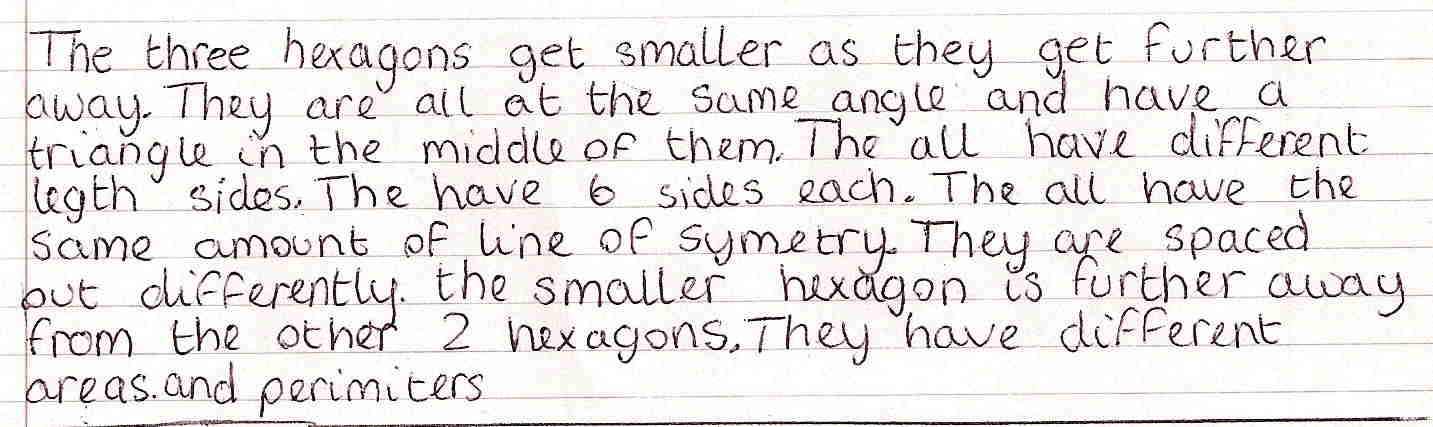 The three hexagons get smaller as they get further
away. They are all at the same angle and have a
triangle in the middle of them. The all have different
legth sides. The have 6 sides each. The all have the
same amount of line of symetry. They are spaced
out differently. the smaller hexagon is further away
from the other 2 hexagons. They have different
areas.and perimiters